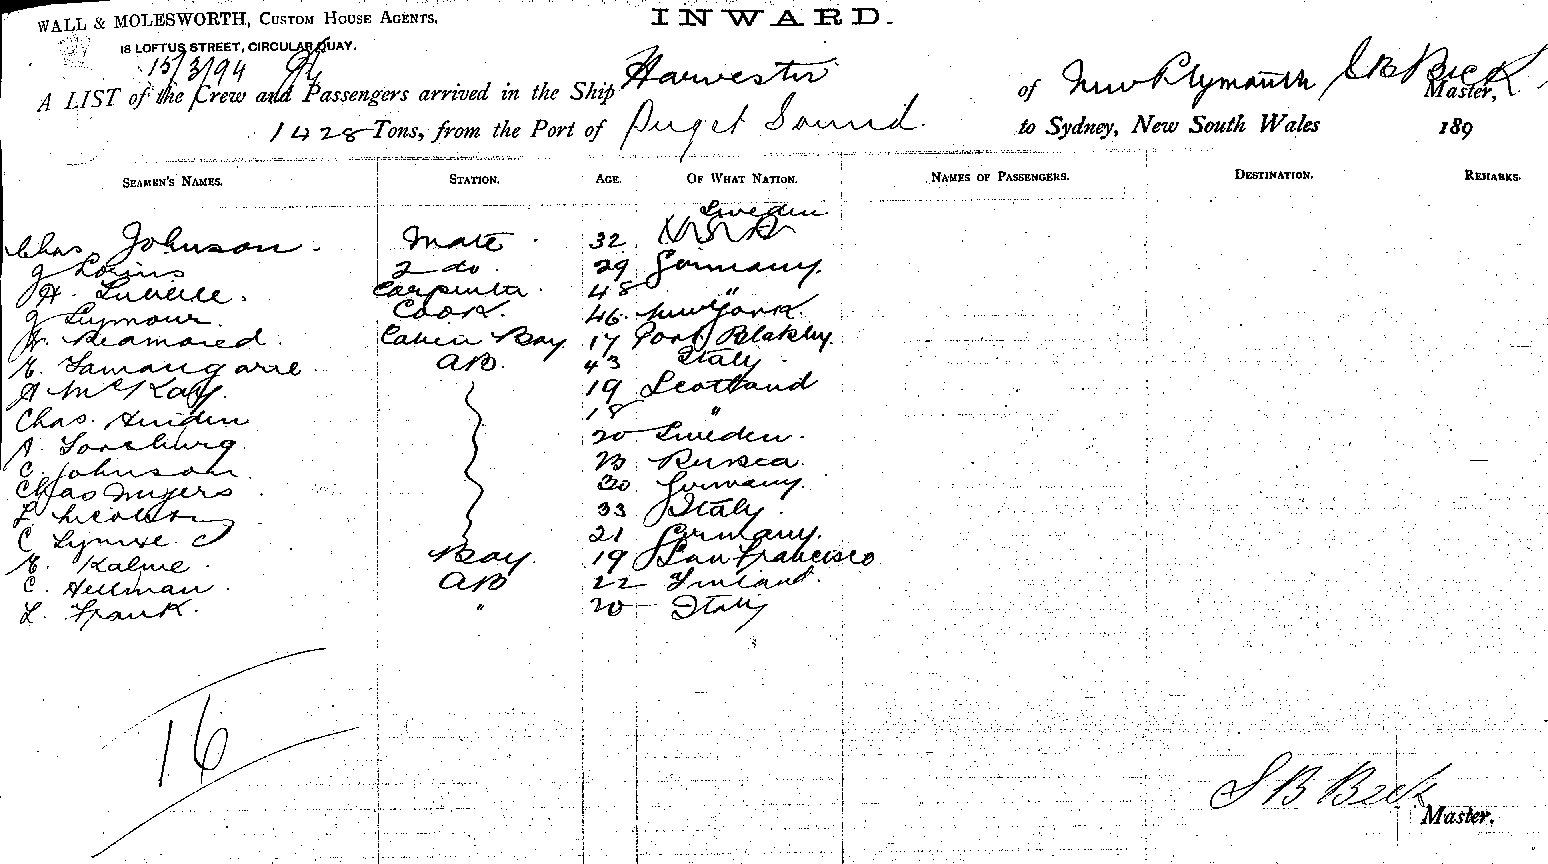 WALL & MOLESWORTH, CUSTOM HOUSE AGENTS,
INWARD.
18 LOFTUS STREET, CIRCULAR QUAY.
15/3/94
A LIST of the Crew and Passengers arrived in the Ship Harvester of New Plymouth S B Beck Master,
1428 Tons, from the Port of Puget Sound to Sydney, New South Wales 189
SEAMEN'S NAMES. STATION. AGE. OF WHAT NATION. NAMES OF PASSENGERS. DESTINATION. REMARKS.
Sweden
Chas Johnson. Mate 32
J 2 do. 29 Germany.
H. Carpenter. 48 "
J Seymour. Cook. 46. New York.
Cabin Boy 17 Port Blakley.
E. AB. 43 Italy
A McKay. 19 Scotland
Chas. 18 "
A. 20 Sweden.
C. Johnson. 23 Russia.
Chas Myers 30 Germany.
L 33 Italy.
C 21 Germany.
E. Kalme. Boy. 19 San Francisco
C. Hellman. AB 22 Finland.
L. Frank. " 20 Italy
16
S B Beck
Master.